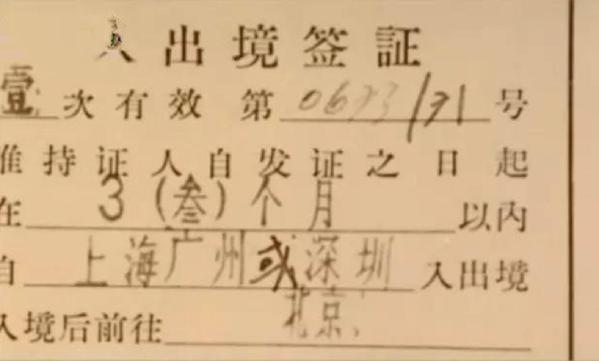 入出境签証
壹次有效 第0673/71号
准持证人自发证之日起
在3(叁)个月以内
自上海广州或深圳入出境
入境后前往北京